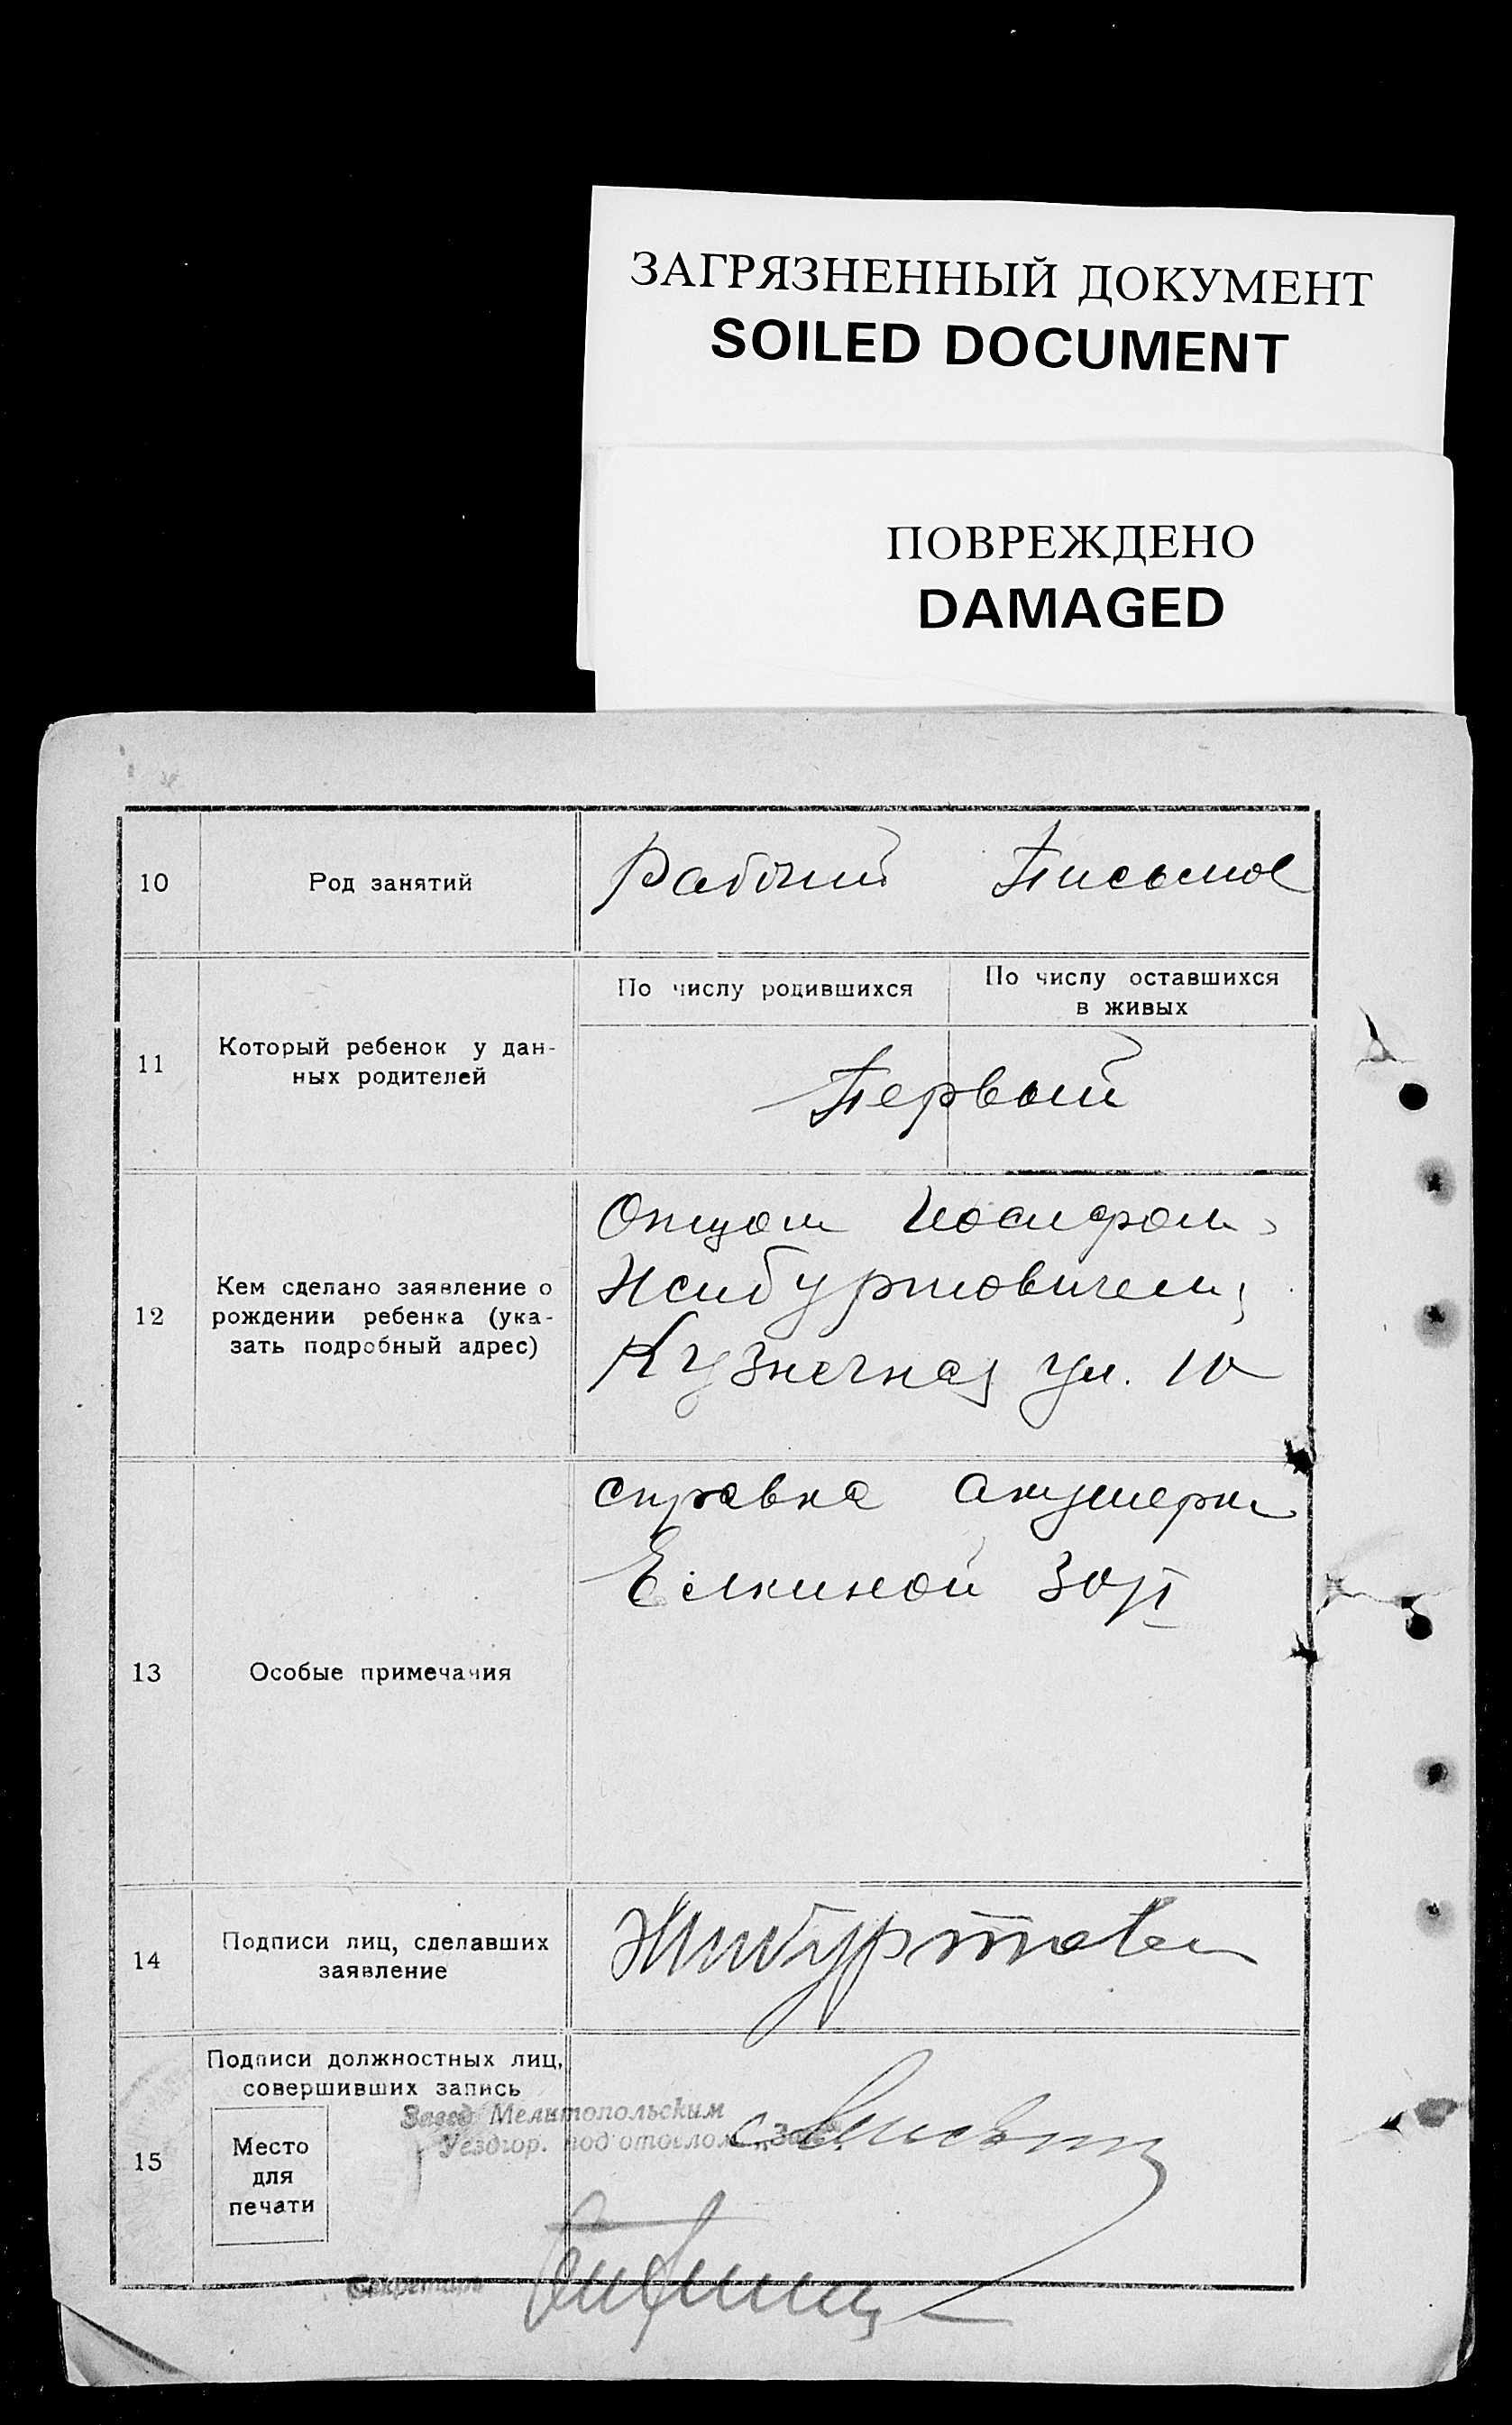 ЗАГРЯЗНЕННЫЙ ДОКУМЕНТ
SOILED DOCUMENT
ПОВРЕЖДЕНО
DAMAGED
10 Род занятий Рабочий
11 Который ребенок у дан-
ных родителей
По числу родившихся
По числу оставшихся
в живых
Первый
12 Кем сделано заявление о
рождении ребенка (ука-
зать подробный адрес)
Отцом Иосифом
Кузнечная ул. 10
13 Особые примечания
справка акушерки
Елкиной
14 Подписи лиц, сделавших
заявление
15 Подписи должностных лиц,
совершивших запись
Место
для
печати
Завед. Мелитопольским
Уездгор. подотделом „Загс“.
Секретарь